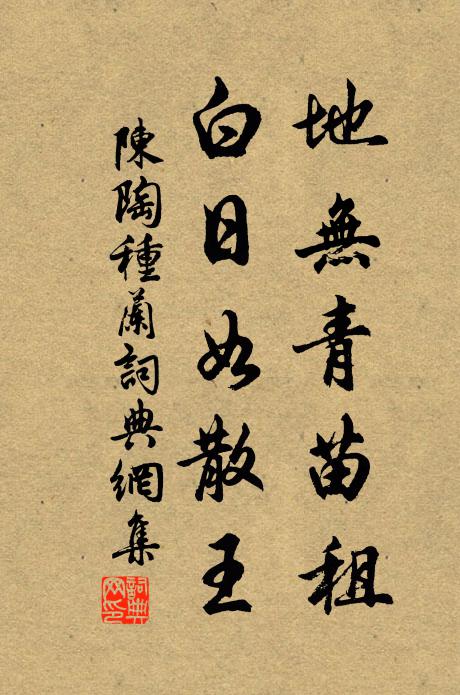 地無青苗租
白日如散王
陳陶種蘭詞典網集
詞典網印